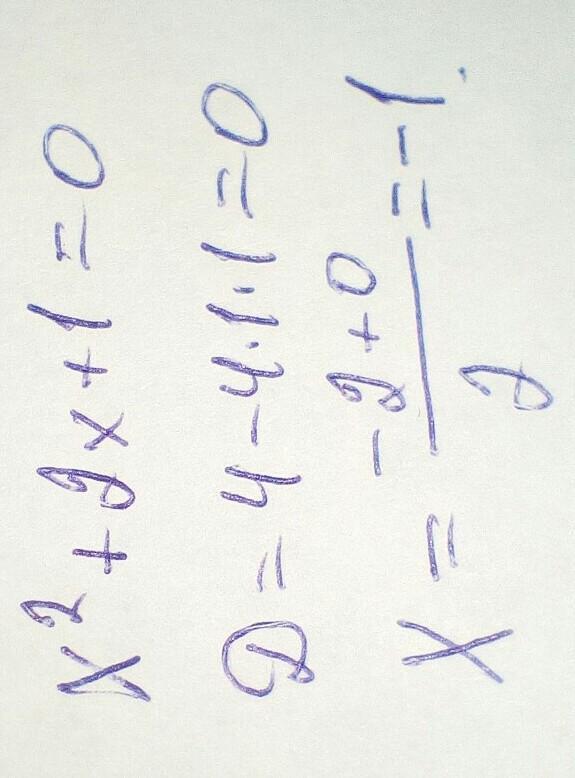 x² + 2x + 1 = 0
D = 4 - 4·1·1 = 0
x = (-2 + 0)/2 = -1.